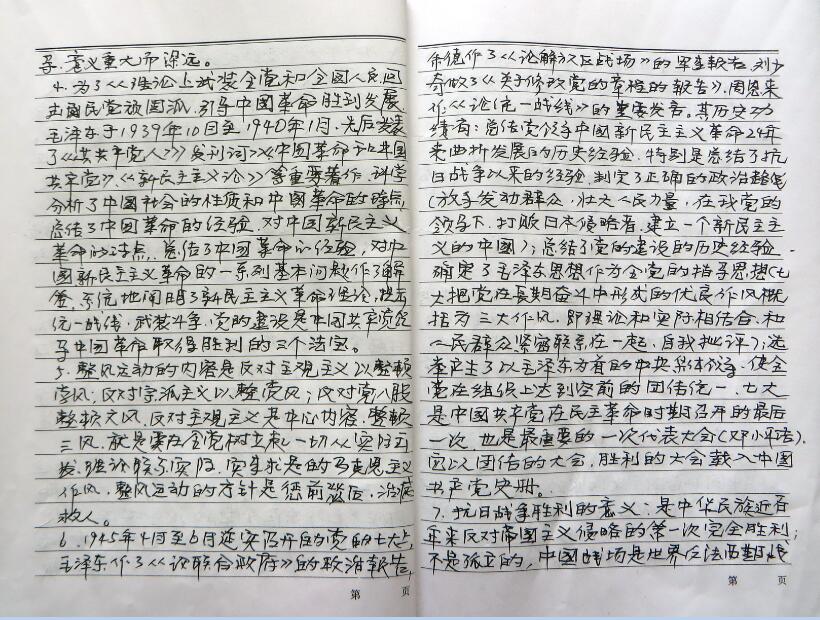 导,意义重大而深远。
4.为了从理论上武装全党和全国人民,回
击国民党顽固派,引导中国革命胜利发展,
毛泽东于1939年10月至1940年1月,先后发表
了《<共产党人>发刊词》《中国革命和中国
共产党》、《新民主主义论》等重要著作,科学
分析了中国社会的性质和中国革命的特点,
总结了中国革命的经验,对中国新民主义
革命的特点,总结了中国革命的经验,对中
国新民主主义革命的一系列基本问题作了解
答,系统地阐明了新民主主义革命理论,提出
统一战线、武装斗争、党的建设是中国共产党领
导中国革命取得胜利的三个法宝。
5.整风运动的内容是反对主观主义以整顿
学风;反对宗派主义以整党风;反对党八股
整顿文风,反对主观主义是中心内容。整顿
三风,就是要在全党树立起一切从实际出
发,理论联系实际,实事求是的马克思主义
作风,整风运动的方针是惩前毖后,治病
救人。
6.1945年4月至6月延安召开的党的七大上,
毛泽东作了《论联合政府》的政治报告,
第 页
朱德作了《论解放区战场》的军事报告,刘少
奇做了《关于修改党的章程的报告》,周恩来
作《论统一战线》的重要发言。其历史功
绩有:总结党领导中国新民主主义革命24年
来曲折发展的历史经验,特别是总结了抗
日战争以来的经验,制定了正确的政治路线
(放手发动群众,壮大人民力量,在我党的
领导下,打败日本侵略者,建立一个新民主主
义的中国);总结了党的建设的历史经验,
确定了毛泽东思想作为全党的指导思想(七
大把党在长期奋斗中形成的优良作风概
括为三大作风,即理论和实际相结合、和
人民群众紧密联系在一起、自我批评);选
举产生了以毛泽东为首的中央集体领导,使全
党在组织上达到空前的团结统一,七大
是中国共产党在民主革命时期召开的最后
一次,也是最重要的一次代表大会(邓小平语).
它以团结的大会,胜利的大会载入中国
共产党史册。
7.抗日战争胜利的意义:是中华民族近百
年来反对帝国主义侵略的第一次完全胜利;
不是孤立的,中国战场是世界反法西斯战
第 页